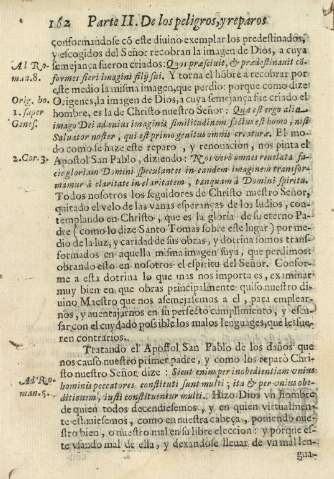 162 Parte II. De los peligros, y reparos
conformandose cõ este diuino exemplar los predestinados,
y escogidos del Señor recobran la imagen de Dios, a cuya
Al Ro- semejança fueron criados: Quos præsciuit, & prædestinauit cõ-
man. 8. formes fieri imagini filij sui. Y torna el hõbre a recobrar por
este medio la misma imagen, que perdio: porque como dize
Orig. ho. Origenes, la imagen de Dios, a cuya semejança fue criado el
1. super hombre, es la de Christo nuestro Señor: Quæ est ergo alia
Genes. imago Dei ad cuius imaginis similitudinem factus est homo, nisi
Saluator noster, qui est primogenitus omnis creaturæ. El mo-
do como le haze este reparo, y renouacion, nos pinta el
2. Cor. 3. Apostol San Pablo, diziendo: Nos verò omnes reuelata fa-
cie gloriam Domini speculantes in eandem imaginem transfor-
mamur à claritate in claritatem, tanquam à Domini spiritu.
Todos nosotros los seguidores de Christo nuestro Señor,
quitado el velo de las vanas esperanças de los Iudios, con-
templando en Christo, que es la gloria de su eterno Pa-
dre (como lo dize Santo Tomas sobre este lugar) por me-
dio de la luz, y caridad de sus obras, y dotrina somos trans-
formados en aquella misma imagen suya, que perdimos:
obrando esto en nosotros el espiritu del Señor. Confor-
me a esta dotrina lo que mas nos importa es, examinar
muy bien en que obras principalmente quiso nuestro di-
uino Maestro que nos asemejasemos a el, para emplear-
nos, y auentajarnos en su perfecto cumplimiento, y escu-
sar con el cuydado posible los malos lenguajes, que les fue-
ren contrarios.
Tratando el Apostol San Pablo de los daños que
nos causò nuestro primer padre, y como los reparò Chri-
sto nuestro Señor, dize: Sicut enim per inobedientiam vnius
Al Ro- hominis peccatores constituti sunt multi; ita & per vnius obe-
man. 5. ditionem, iusti constituentur multi. Hizo Dios vn hombre
de quien todos decendiesemos, y en quien virtualmen-
te estuuiesemos, como en nuestra cabeça, poniendo nue-
stro bien, o nuestro mal en su libre eleccion: y porque es-
te vsando mal de ella, y dexandose lleuar de vn mal len-
gua-